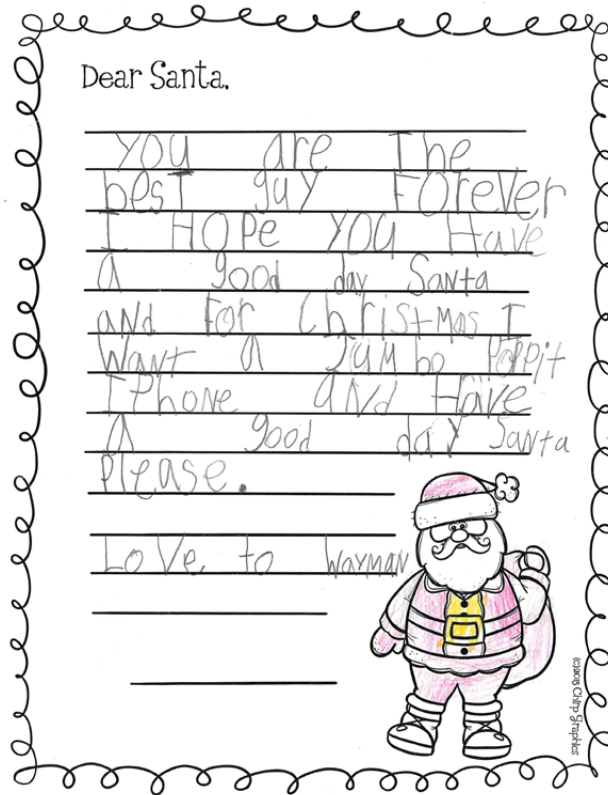 Dear Santa,
You are The
best guy Forever
I Hope you Have
a good day Santa
and For Christmas I
Want a Jumbo Poppit
I Phone and Have
a good day Santa
Please.
Love to Wayman
(c)2015 Chirp Graphics